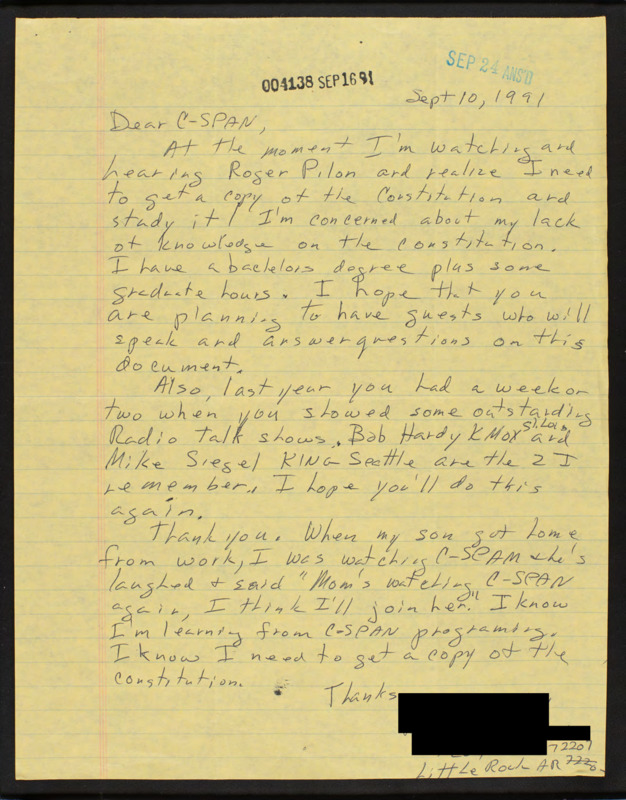 004138 SEP 16 91
SEP 24 ANS'D
Sept 10, 1991
Dear C-SPAN,
At the moment I'm watching and
hearing Roger Pilon and realize I need
to get a copy of the Constitution and
study it! I'm concerned about my lack
of knowledge on the constitution.
I have a bachelors degree plus some
graduate hours. I hope that you
are planning to have guests who will
speak and answer questions on this
document.
Also, last year you had a week or
two when you showed some outstanding
Radio talk shows. Bob Hardy KMOX St. Louis and
Mike Siegel KING Seattle are the 2 I
remember. I hope you'll do this
again.
Thank you. When my son got home
from work, I was watching C-SPAN & he's
laughed & said "Mom's watching C-SPAN
again, I think I'll join her." I know
I'm learning from C-SPAN programing.
I know I need to get a copy of the
constitution.
Thanks
72207
Little Rock AR